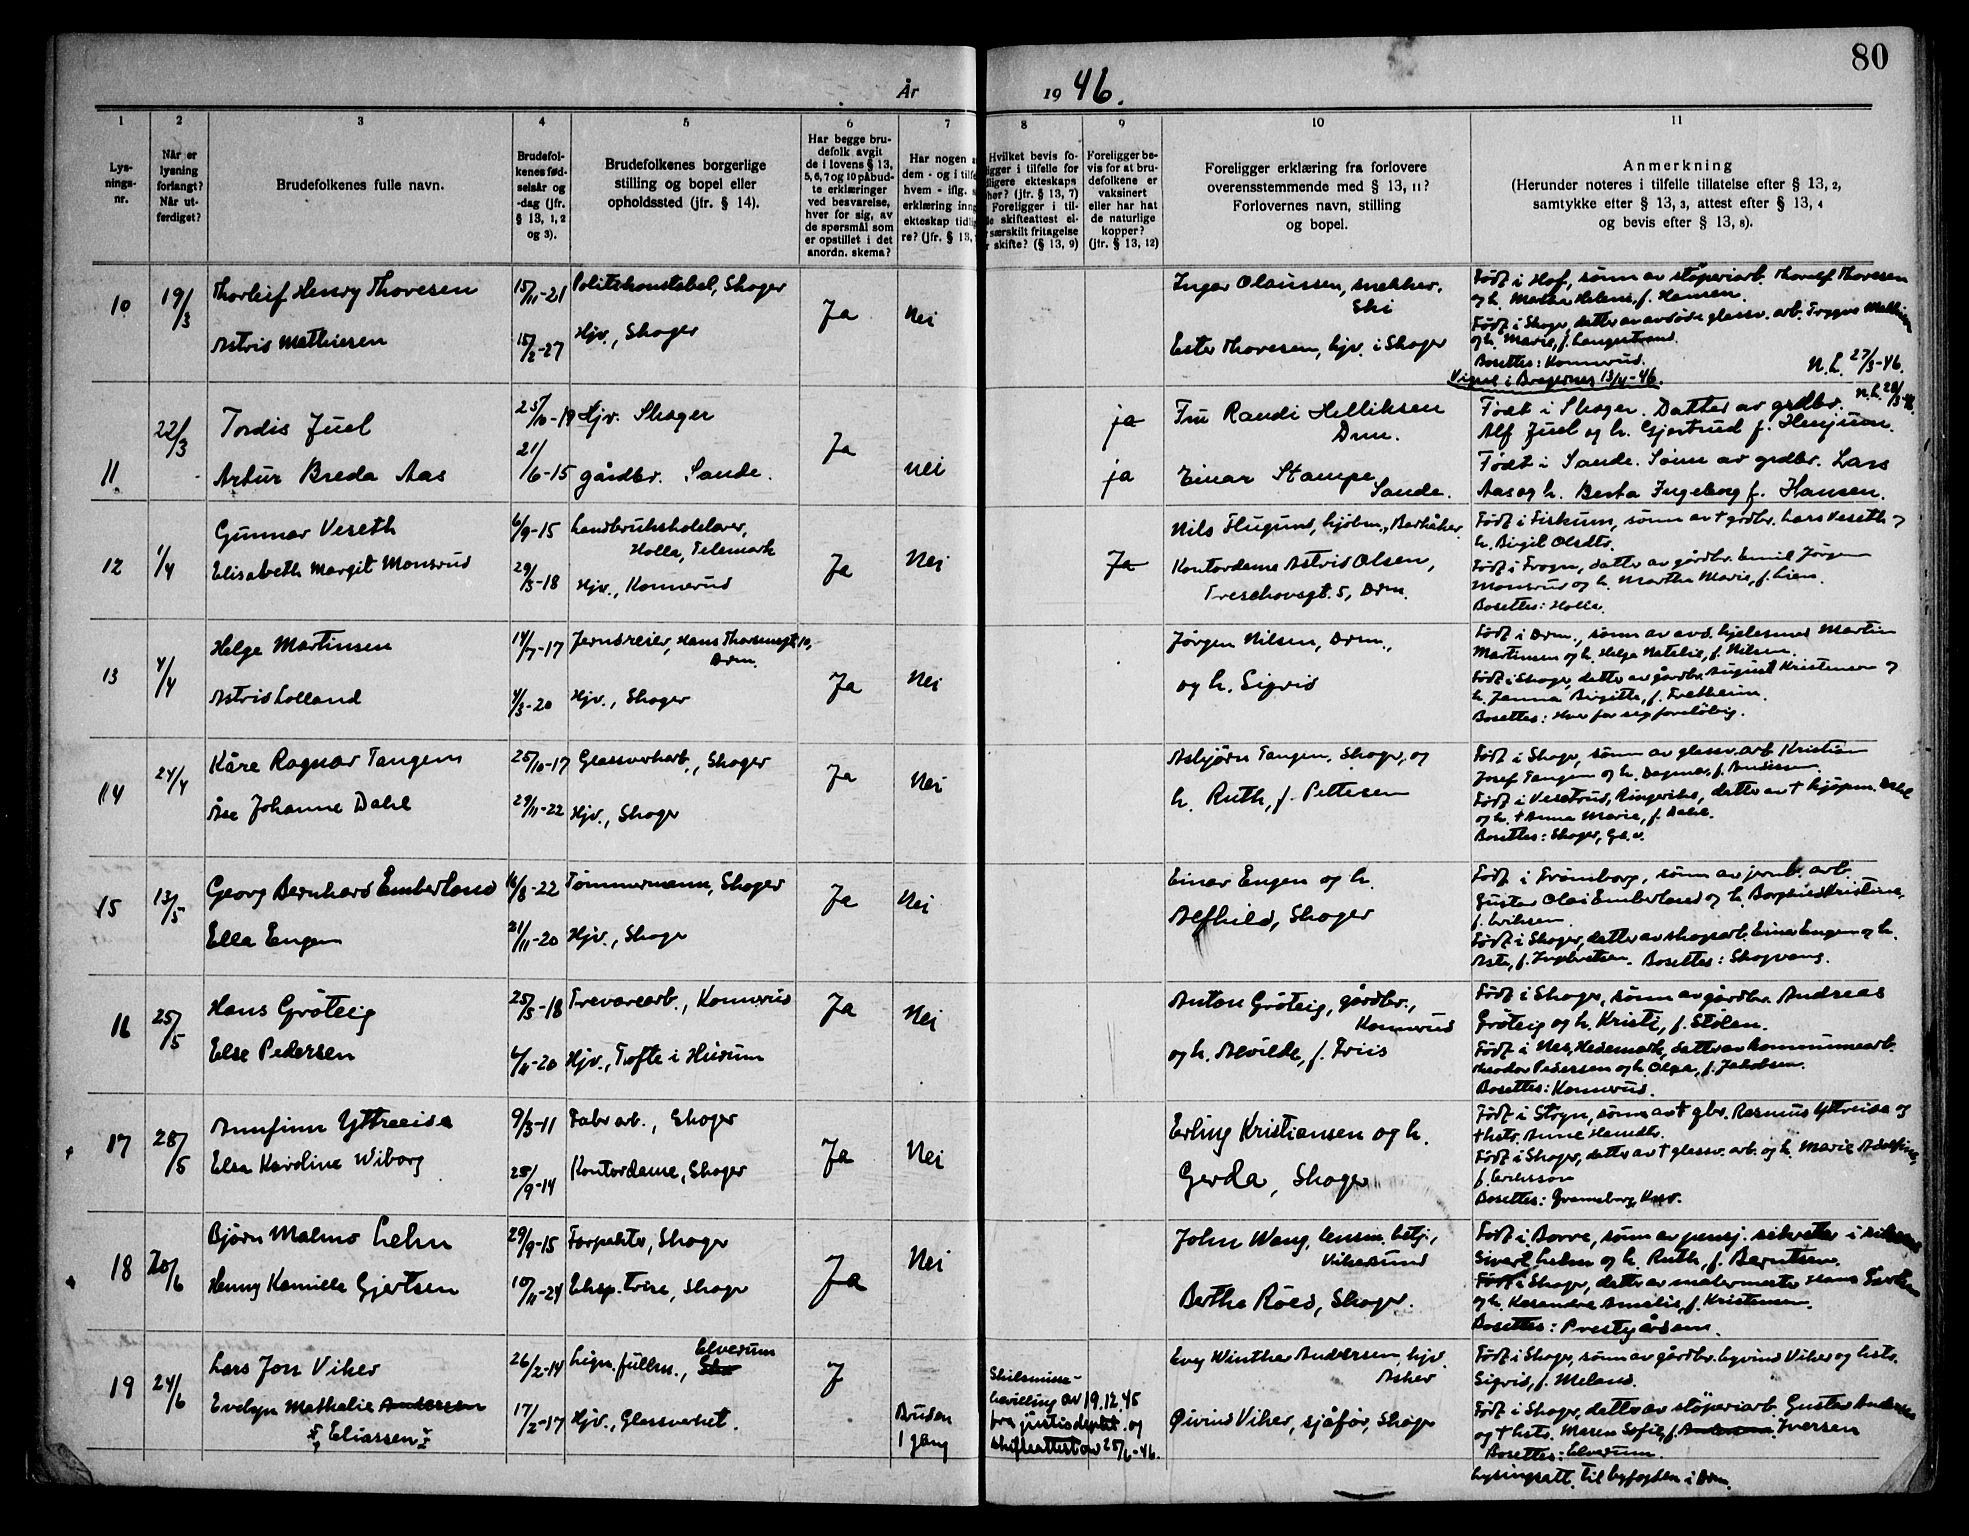 80
År 1946.
1 2 3 4 5 6 7 8 9 10 11
Lys-
nings-
nr.
Når er
lysning
forlangt?
Når ut-
ferdiget?
Brudefolkenes fulle navn.
Brudefol-
kenes fød-
selsår og
-dag (jfr.
§ 13, 1, 2
og 3).
Brudefolkenes borgerlige
stilling og bopel eller
opholdssted (jfr. § 14).
Har begge bru-
defolk avgit
de i lovens § 13,
5, 6, 7 og 10 påbud-
te erklæringer
ved besvarelse,
hver for sig, av
de spørsmål som
er opstillet i det
anordn. skema?
Har nogen a
dem - og i tilfe
hvem - iflg. s
erklæring inng
ekteskap tidli
re? (jfr. § 13,
Hvilket bevis fo-
ligger i tilfelle for
dligere ekteskaps
her? (jfr. § 13, 7)
Foreligger i til-
le skifteattest el-
r særskilt fritagelse
skifte? (§ 13, 9)
Foreligger be-
vis for at bru-
defolkene er
vaksinert
eller har hat
de naturlige
kopper?
(jfr. § 13, 12)
Foreligger erklæring fra forlovere
overensstemmende med § 13, 11?
Forlovernes navn, stilling
og bopel.
Anmerkning
(Herunder noteres i tilfelle tillatelse efter § 13, 2,
samtykke efter § 13, 3, attest efter § 13, 4
og bevis efter § 13, 8).
10 19/3 Thorleif Henry Thoresen 15/11-21 Politikonstabel, Skoger Ja Nei
Astrid Mathiesen 15/2-27 Hjv., Skoger
Ingar Olaussen, snekker,
Ski
Ester Thoresen, hjv. i Skoger
Født i Hof, sønn av støperiarb. Thoralf Thoresen
og h. Martha Helene, f. Hansen.
Født i Skoger, datter av avdøde glassv. arb. Trygve Mathiesen
og h. Marie, f. Langestrand.
Bosettes: Konnerud. N.L. 27/3-46.
Viget i Bragernes 13/4-46.
11 22/3 Tordis Juel 25/10-19 Hjv. Skoger Ja nei
Artur Breda Aas 21/6-15 gårdbr. Sande.
ja Fru Randi Helliksen
Drm.
ja Einar Stampe
Sande.
N.L. 28/3-46.
Født i Skoger. Datter av grdbr.
Alf Juel og h. Gjertrud f. Henjum.
Født i Sande. Sønn av grdbr. Lars
Aas og h. Berta Ingeborg f. Hansen.
12 1/4 Gunnar Veseth 6/9-15 Landbrukskolelærer,
Holla, Telemark Ja Nei
Elisabeth Margit Monsrud 29/3-18 Hjv., Konnerud
Ja
Nils Flugund, kjøbm., Berkåker
Kontordame Astrid Olsen,
Treschowsgt. 5, Drm.
Født i Fiskum, sønn av + grdbr. Lars Veseth og
h. Birgit Olsdtr.
Født i Frogn, datter av gårdbr. Emil Jørgen
Monsrud og h. Martha Marie, f. Lien.
Bosettes: Holla.
13 4/4 Helge Martinsen 14/7-17 Jerndreier, Hans Thornesgt. 10,
Drm. Ja Nei
Astrid Lolland 4/3-20 Hjv., Skoger
Jørgen Nilsen, Drm.,
og h. Sigrid
Født i Drm., sønn av avd. kjelesmed Martin
Martinsen og h. Helga Natalie, f. Nilsen.
Født i Skoger, datter av gårdbr. August Kristensen og
h. Janna Birgitte, f. Fretheim.
Bosettes: Hver for seg foreløbig.
14 24/4 Kåre Ragnar Tangen 25/10-17 Glassverkarb., Skoger Ja Nei
Åse Johanne Dahl 29/11-22 Hjv., Skoger
Asbjørn Tangen, Skoger, og
h. Ruth, f. Pettersen
Født i Skoger, sønn av glassv. arb. Kristian
Josef Tangen og h. Dagmar, f. Andersen
Født i Vesetrud, Ringerike, datter av + kjøpm. Dahl
og h. + Anna Marie, f. Dahl.
Bosettes: Skoger, Gl.v.
15 13/5 Georg Bernhard Emberland 16/8-22 Tømmermann, Skoger Ja Nei
Ella Engen 21/11-20 Hjv., Skoger
Einar Engen og h.
Alfhild, Skoger
Født i Trømborg, sønn av jernb. arb.
Gustav Olai Emberland og h. Borghild Kristine,
f. Eriksen
Født i Skoger, datter av skogsarb. Einar Engen og h.
Asta, f. Ingebretsen. Bosettes: Skogvang.
16 25/5 Hans Grøteig 25/5-18 Trevarearb., Konnerud Ja Nei
Else Pedersen 4/4-20 Hjv., Tofte i Hurum
Anton Grøteig, gårdbr.,
Konnerud
og h. Alvilde, f. Friis
Født i Skoger, sønn av gårdbr. Andreas
Grøteig og h. Kristi, f. Stølen.
Født i Nes, Hedemark, datter av kommunearb.
Theodor Pedersen og h. Olga, f. Jakobsen.
Bosettes: Konnerud.
17 28/5 Annfinn Yttreeide 9/3-11 Fabr. arb., Skoger Ja Nei
Elsa Karoline Wiborg 25/9-14 Kontordame, Skoger
Erling Kristiansen og h.
Gerda, Skoger
Født i Stryn, sønn av + gbr. Rasmus Yttreeide og
+ hstr. Anne Hansdtr.
Født i Skoger, datter av + glassv. arb. og h. Marie Adolfine,
f. Eriksson
Bosettes: Gramsborg, Knv.
18 20/6 Bjørn Malmo Lehn 29/9-15 Forpakter, Skoger Ja Nei
Henny Kamilla Gjertsen 10/11-24 Eksp.trise, Skoger
John Wang, lensm. betj.,
Vikersund
Berthe Røed, Skoger.
Født i Borre, sønn av pensj. sekretær i
Sivert Lehn og h. Ruth, f. Berntsen.
Født i Skoger, datter av malermester Hans Gjertsen
og h. Kasandra Amalie, f. Kristensen.
Bosettes: Prestgården.
19 24/6 Lars Jon Viker 26/2-14 Lign. fullm., Elverum J
Evelyn Mathalie Andersen 17/2-17 Hjv., Glassverket.
Eliassen
Bruden
1 gang
Skilsmisse-
bevilling av 19.12.45
fra justisdeptet og
skifteattest av 25/6-46.
Evy Winther Andersen, hjv.
Asker
Øivind Viker, sjåfør, Skoger
Født i Skoger, sønn av gårdbr. Eyvind Viker og hstr.
Sigrid, f. Meland.
Født i Skoger, datter av støperiarb. Gustav Andersen
og + hstr. Maren Sofie, f. Andersen Iversen
Bosettes: Elverum.
Lysningsatt. til byfogden i Drm.